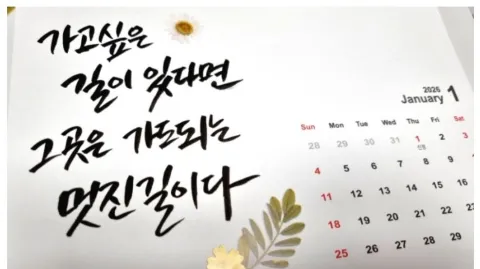 가고싶은
길이 있다면
그곳은 가도되는
멋진길이다
2026
January 1
Sun Mon Tue Wed Thu Fri Sat
28 29 30 31 1 2 3
신정
4 5 6 7 8 9
11 12 13 14 15 16
18 19 20 21 22 23
25 26 27 28 29